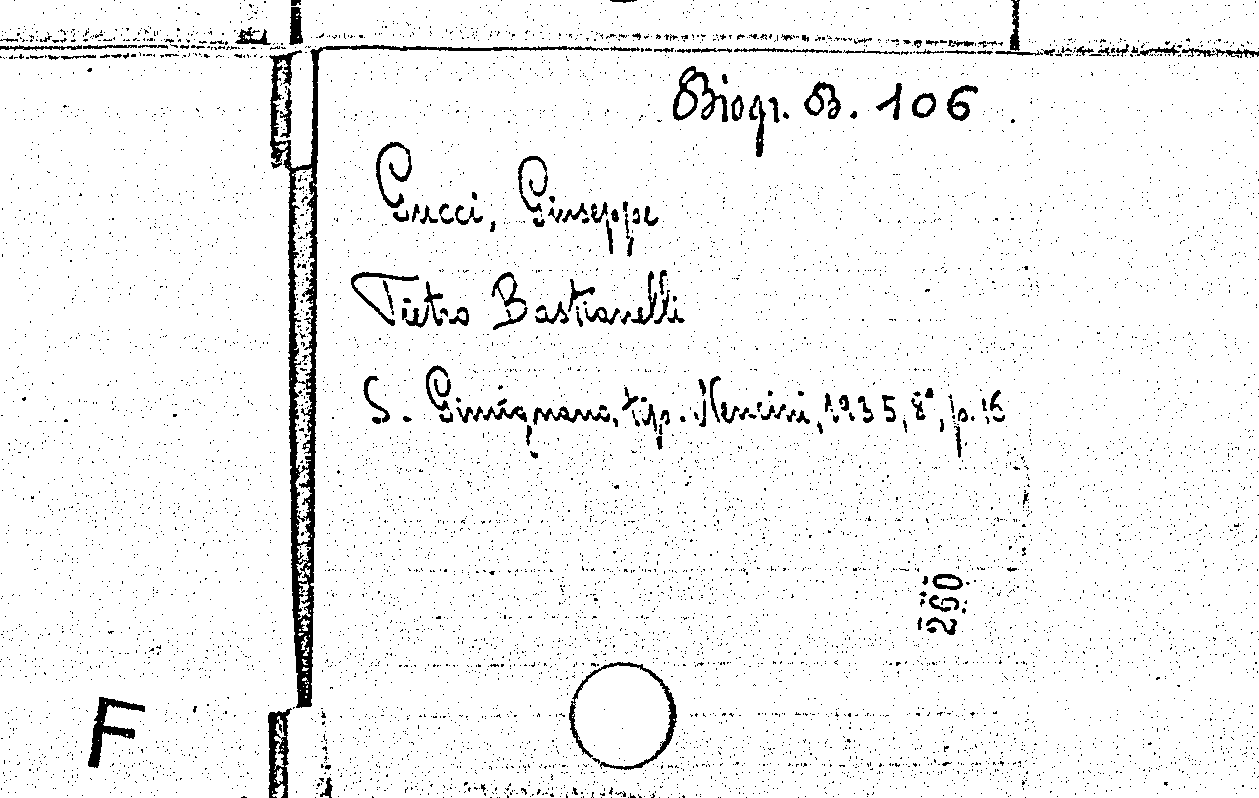 Biogr. B. 106
Gucci, Giuseppe
Pietro Bastianelli
S. Gimignano, tip. Nencini, 1935, 8°, p. 16
260
F